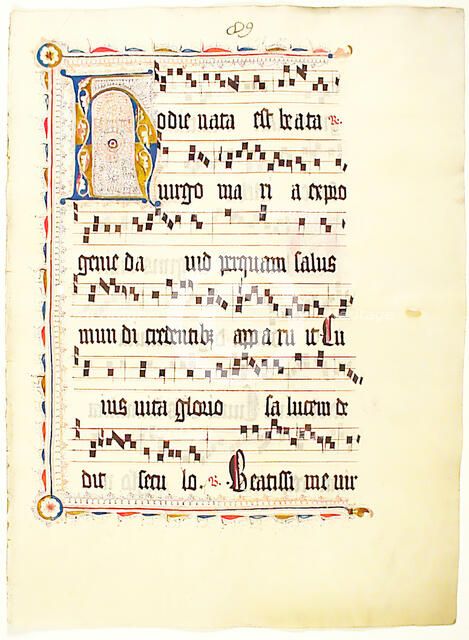 Hodie nata est beata
uirgo ma ri a ex pro
genie da uid per quam salus
mun di credentibz appa ru it Cu
ius uita glorio sa lucem de
dit secu lo. Beatissi me uir